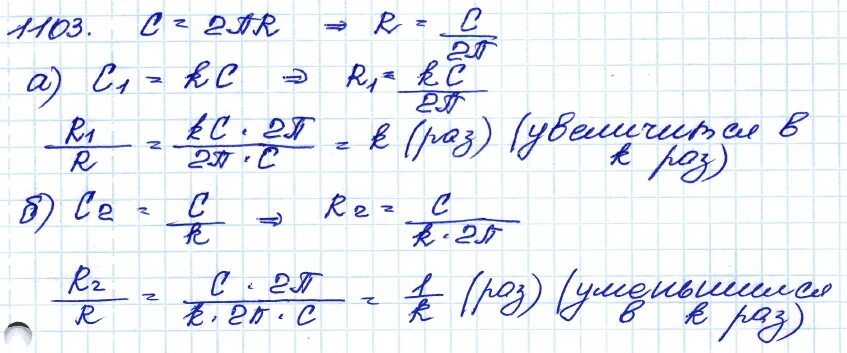 1103. C = 2πR ⇒ R = C/2π
а) C₁ = kC ⇒ R₁ = kC/2π
R₁/R = kC · 2π/2π · C = k (раз) (увеличится в
k раз)
б) C₂ = C/k ⇒ R₂ = C/k · 2π
R₂/R = C · 2π/k · 2π · C = 1/k (раз) (уменьшился
в k раз)